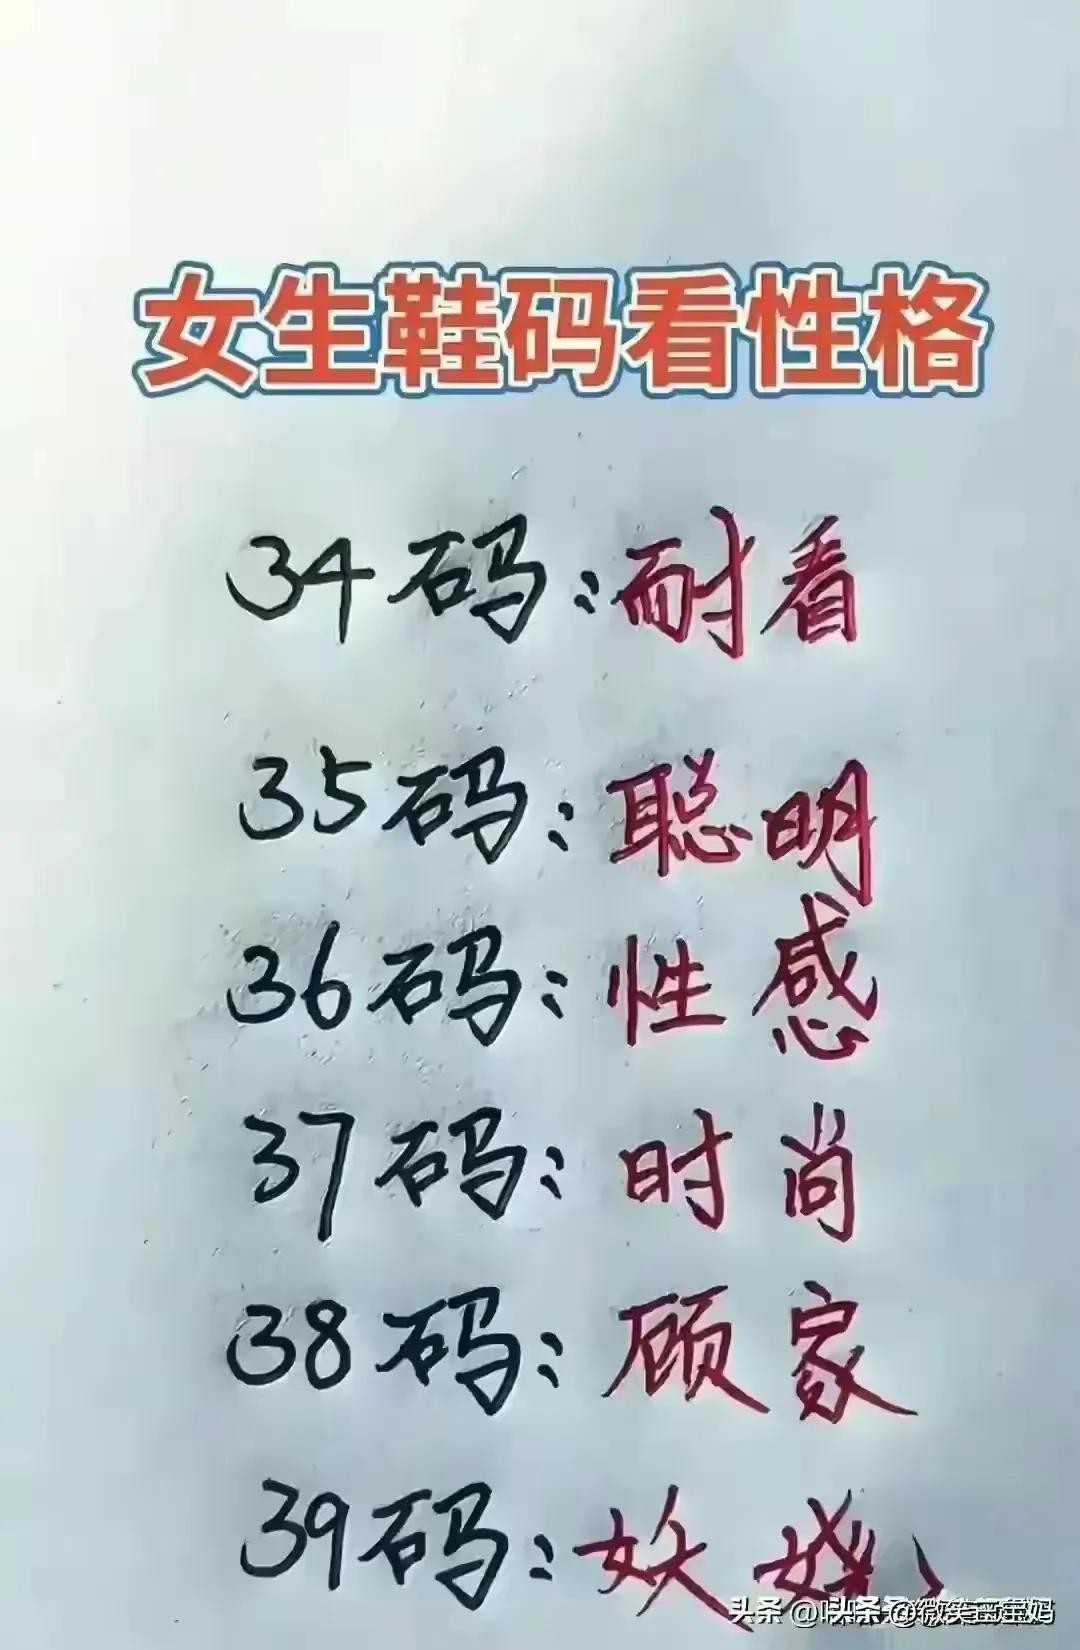 女生鞋码看性格
34码:耐看
35码:聪明
36码:性感
37码:时尚
38码:顾家
39码:妖娆
头条 @微笑 宝妈